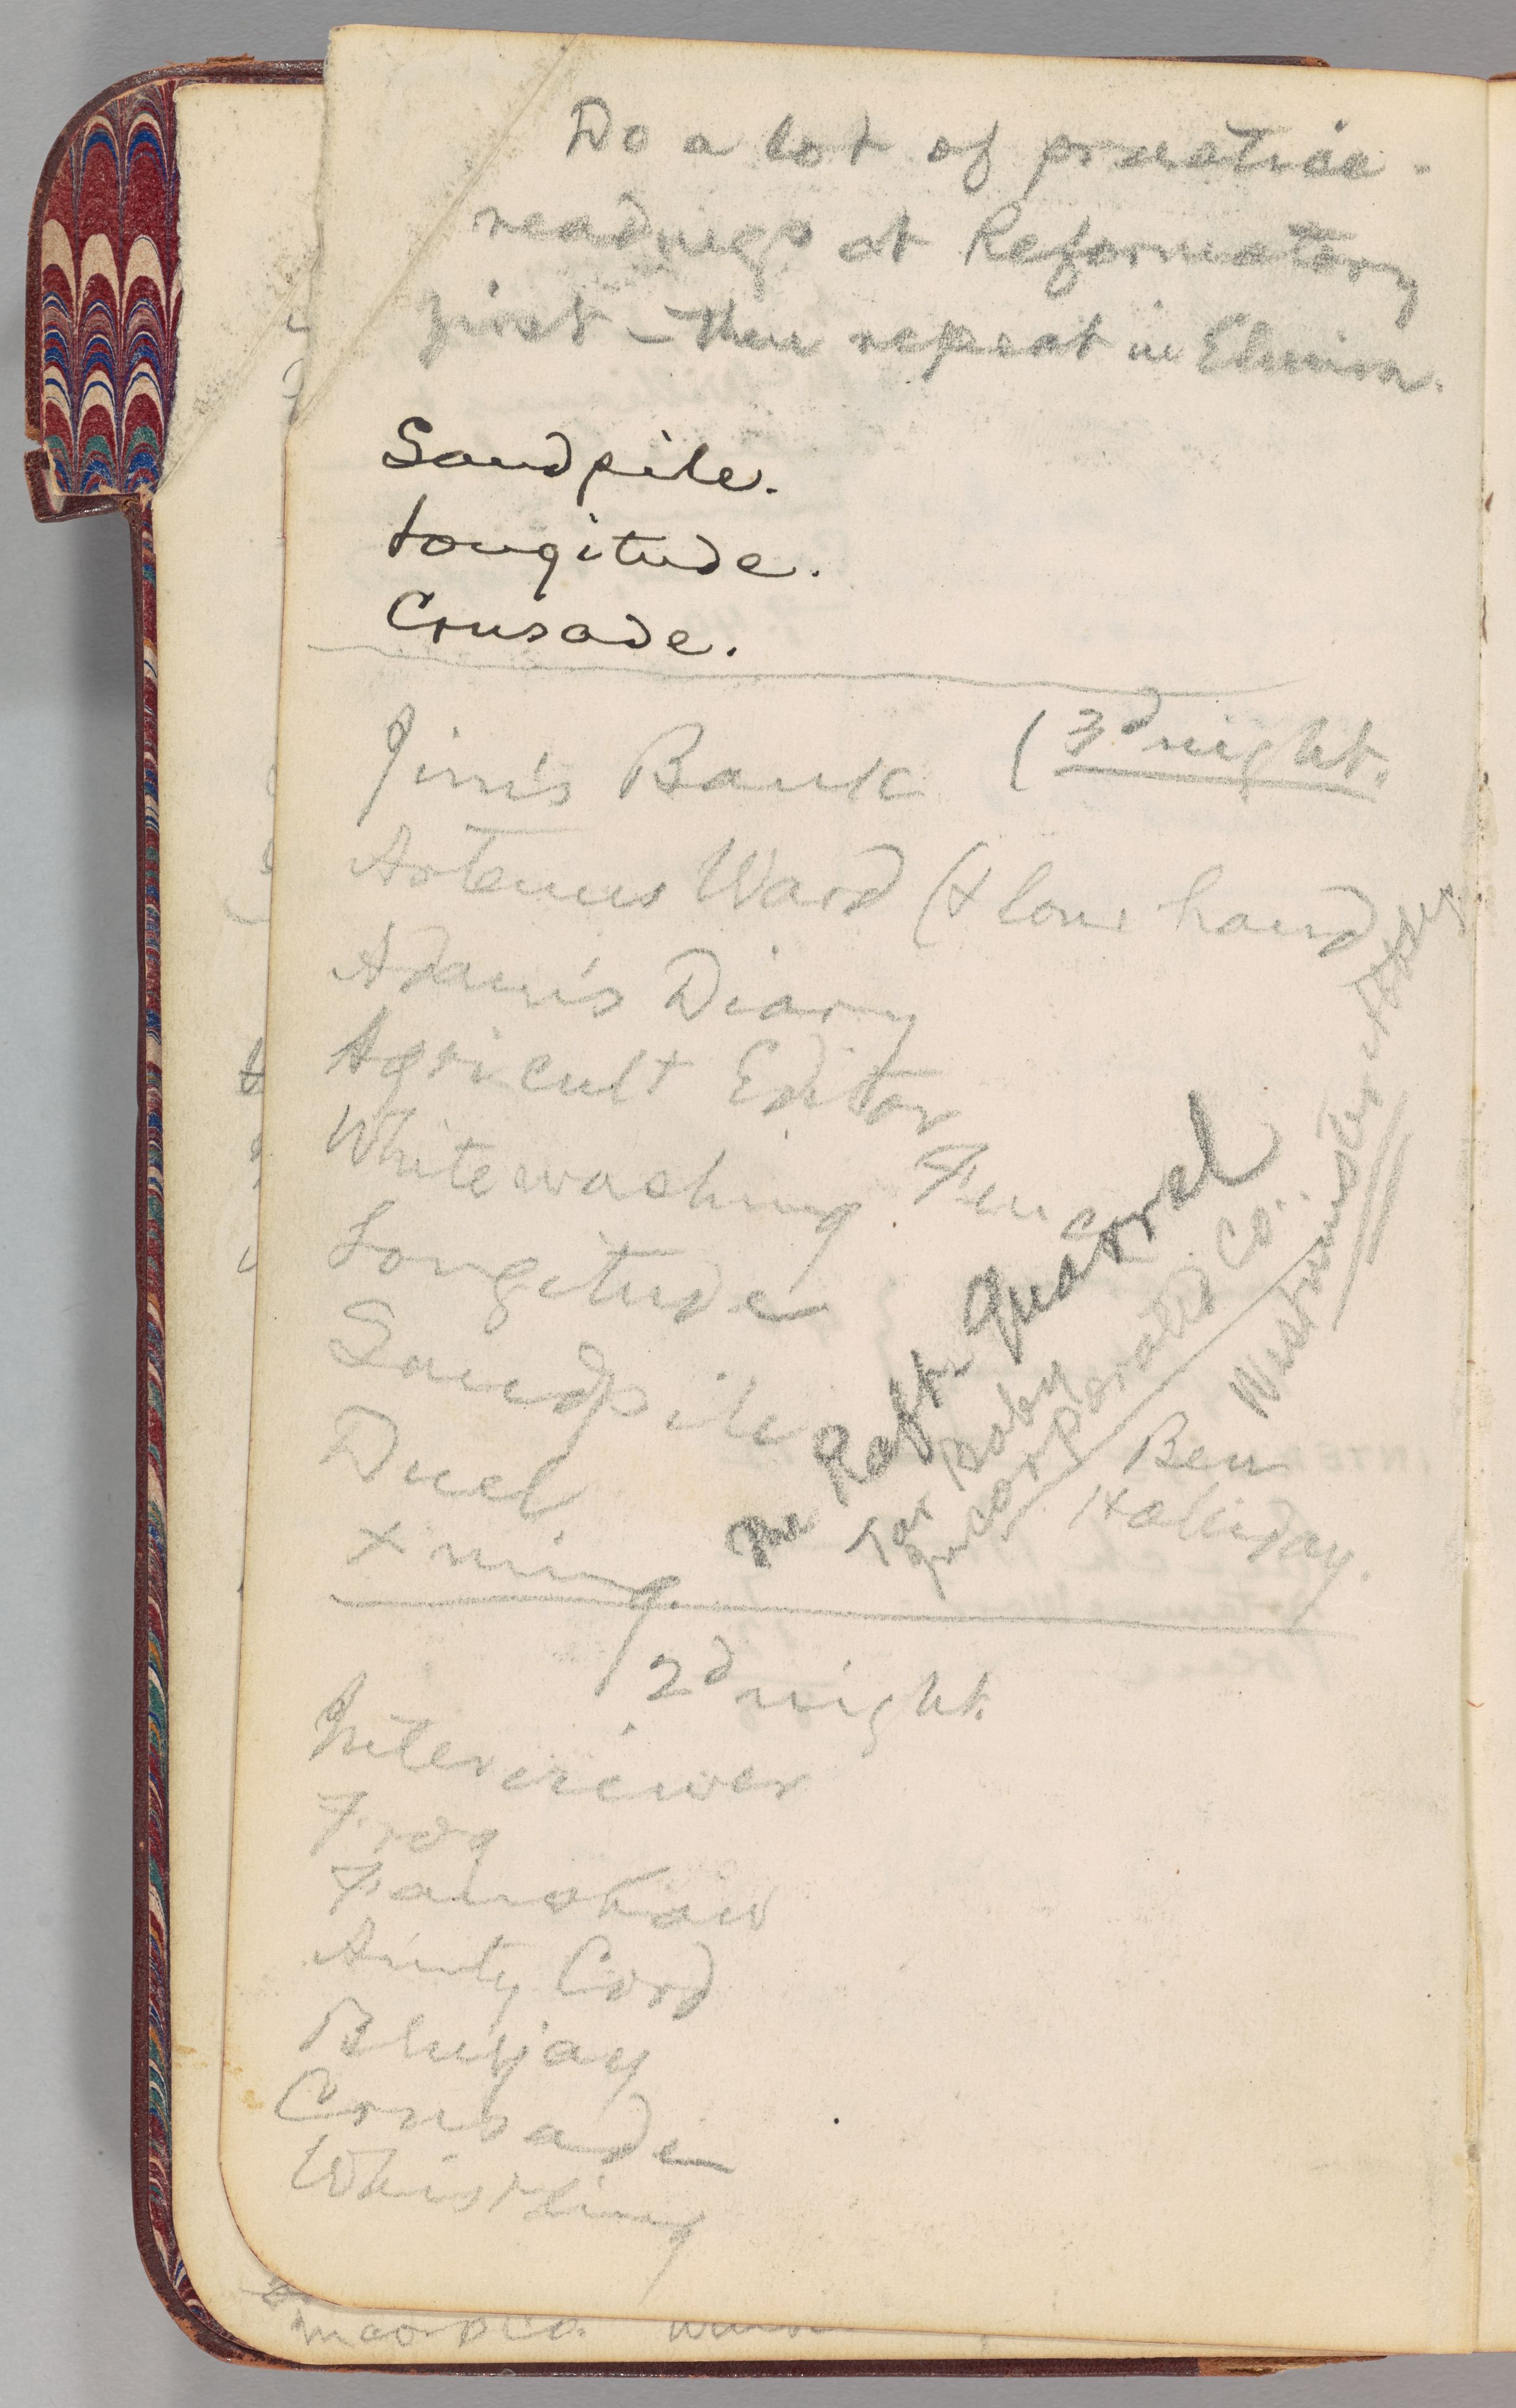 Do a lot of practice-
readings at Reformatory
first – then repeat in Elmira.
Sandpile.
Longitude.
Crusade.
Jim's Bank (3d night.
Artemus Ward (+ lone hand
Adam's Diary
Agricult Editor
Whitewashing Fence
Longitude
Sandpile
Duel.
+ ning.
The Raft-Quarrel
Tar Baby
Incorporated Co.
Westminster
Ben
Holliday.
2d night.
Interviewer
Frog
Fanshaw
Aunty Cord
Bluejay
Crusade
Whistling